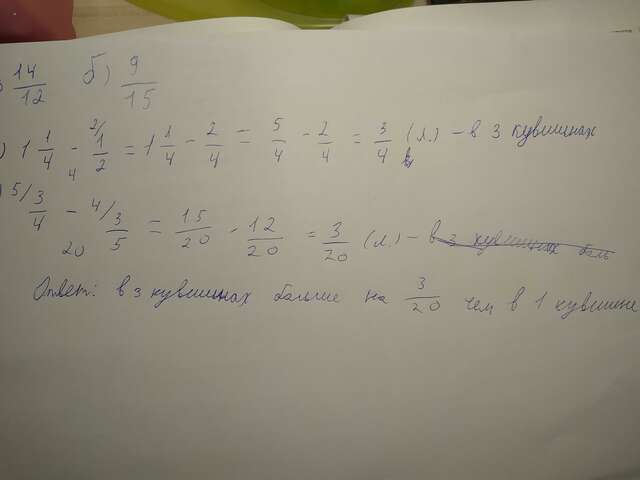 ) 14/12 б) 9/15
) 1 1/4 - 2/ 1/2 4 = 1 1/4 - 2/4 = 5/4 - 2/4 = 3/4 (л.) - в 3 кувшинах
) 5/ 3/4 - 4/ 3/5 20 = 15/20 - 12/20 = 3/20 (л.) - в 3 кувшинах боль
Ответ: в 3 кувшинах больше на 3/20 чем в 1 кувшине